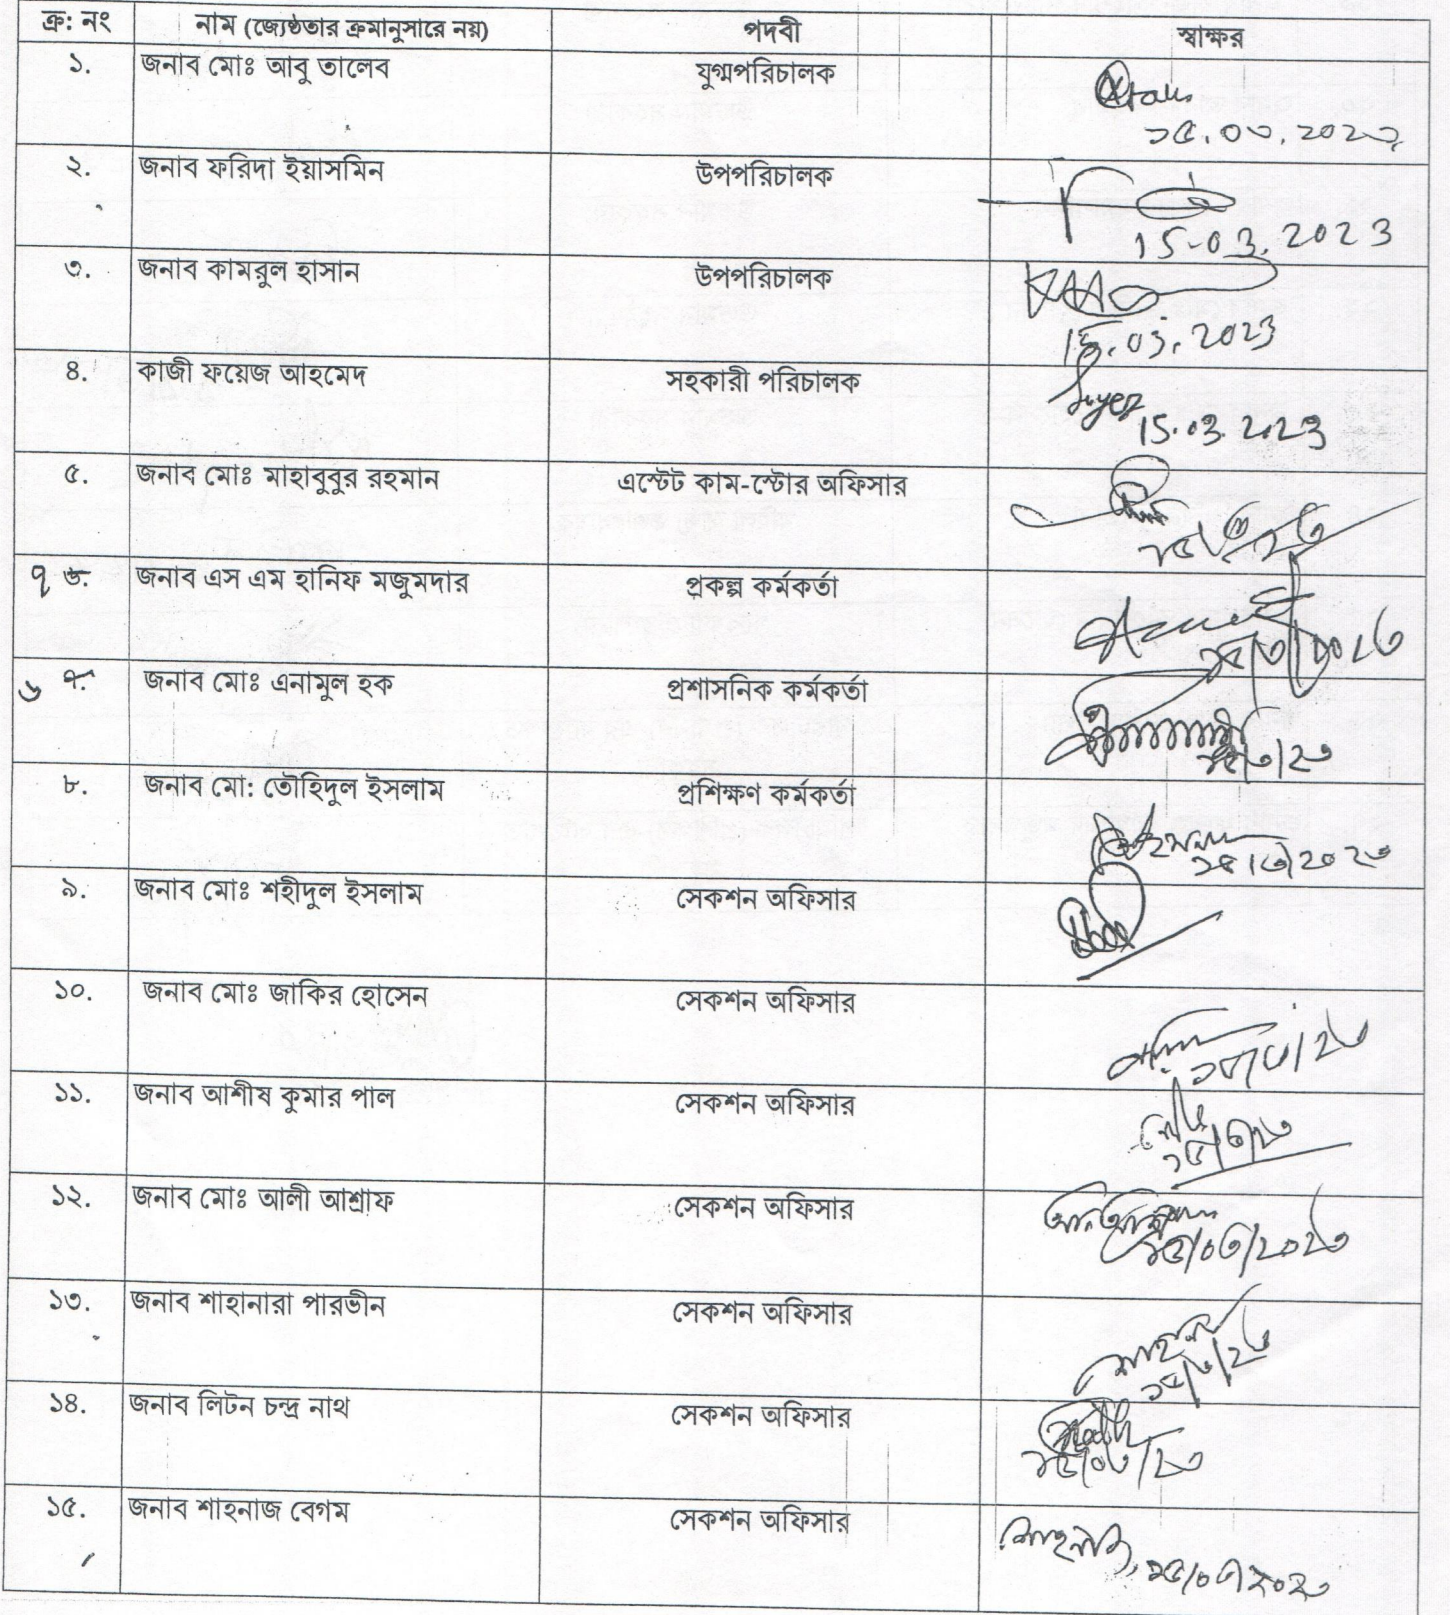 ক্র: নং নাম (জ্যেষ্ঠতার ক্রমানুসারে নয়) পদবী স্বাক্ষর
১. জনাব মোঃ আবু তালেব যুগ্মপরিচালক
১৫.০৩.২০২৩
২. জনাব ফরিদা ইয়াসমিন উপপরিচালক
15-03.2023
৩. জনাব কামরুল হাসান উপপরিচালক
15.03.2023
৪. কাজী ফয়েজ আহমেদ সহকারী পরিচালক
15.03.2023
৫. জনাব মোঃ মাহাবুবুর রহমান এস্টেট কাম-স্টোর অফিসার
৭ ৬. জনাব এস এম হানিফ মজুমদার প্রকল্প কর্মকর্তা
৬ ৭. জনাব মোঃ এনামুল হক প্রশাসনিক কর্মকর্তা
১৫/৩/২৩
৮. জনাব মো: তৌহিদুল ইসলাম প্রশিক্ষণ কর্মকর্তা
১৫/৩/২০২৩
৯. জনাব মোঃ শহীদুল ইসলাম সেকশন অফিসার
১০. জনাব মোঃ জাকির হোসেন সেকশন অফিসার
১৫/৩/২৩
১১. জনাব আশীষ কুমার পাল সেকশন অফিসার
১৫/৩/২৩
১২. জনাব মোঃ আলী আশ্রাফ সেকশন অফিসার
১৫/০৩/২০২৩
১৩. জনাব শাহানারা পারভীন সেকশন অফিসার
১৫/৩/২৩
১৪. জনাব লিটন চন্দ্র নাথ সেকশন অফিসার
১৫/০৩/২৩
১৫. জনাব শাহনাজ বেগম সেকশন অফিসার
শাহনাজ, ১৫/০৩/২০২৩